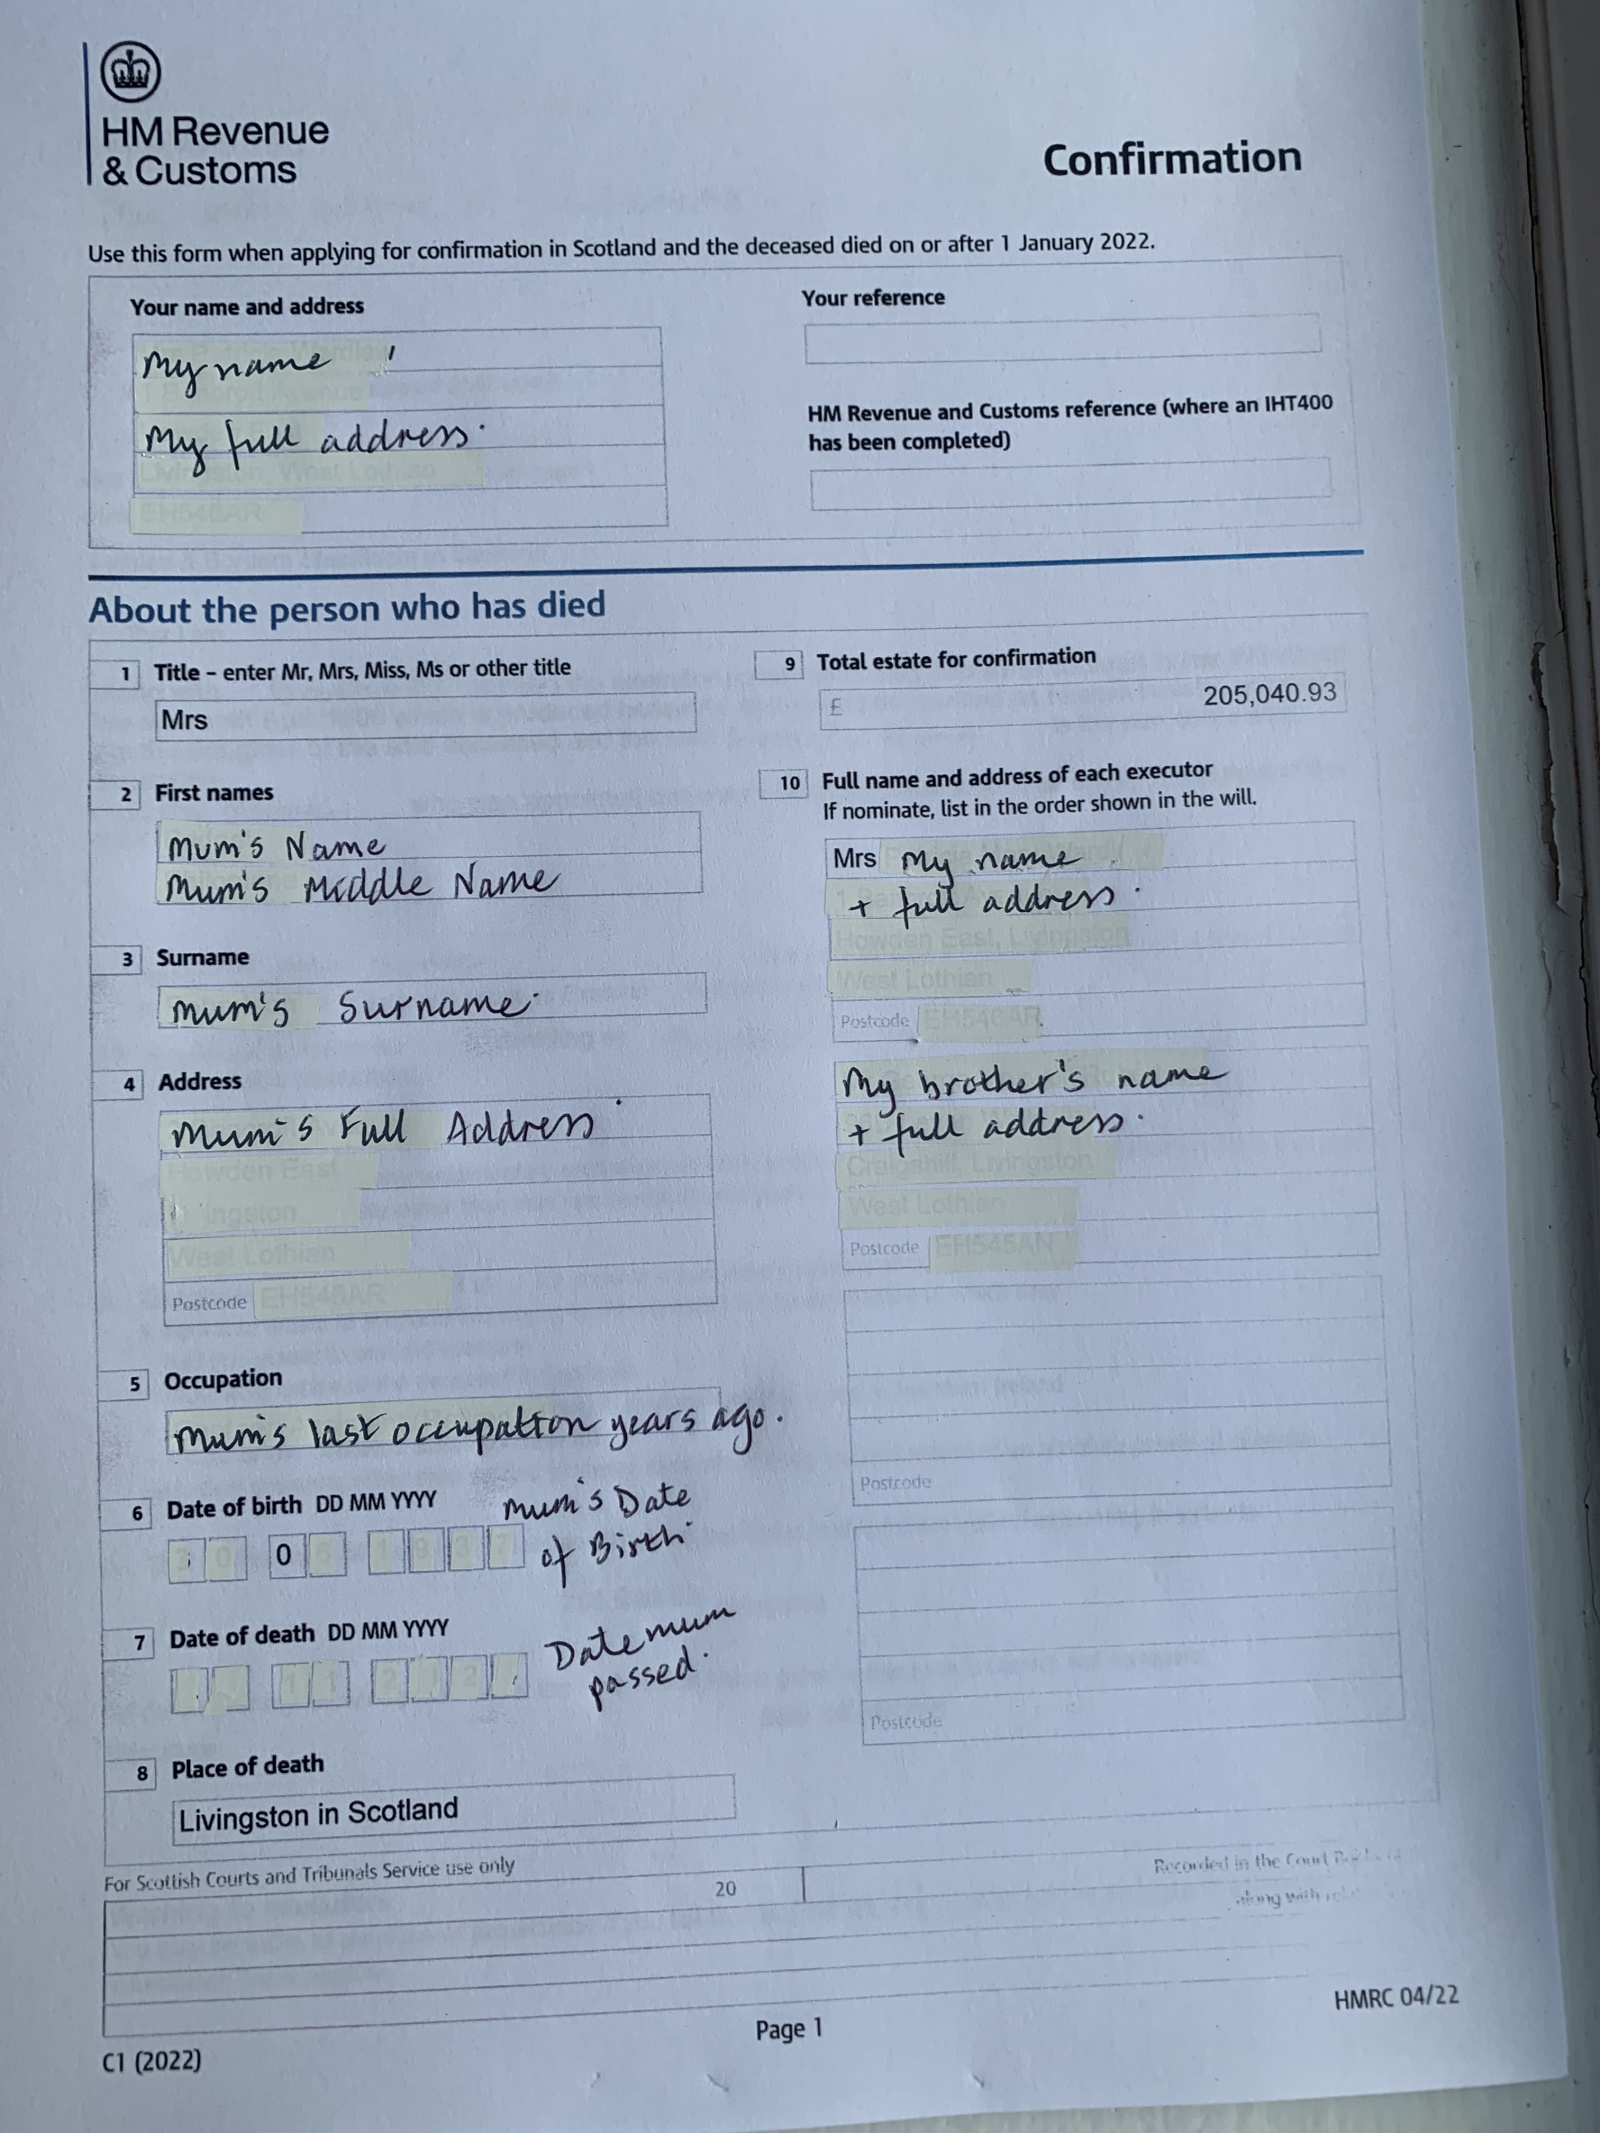 HM Revenue
& Customs
Confirmation
Use this form when applying for confirmation in Scotland and the deceased died on or after 1 January 2022.
Your name and address
My name
My full address.
Your reference
HM Revenue and Customs reference (where an IHT400
has been completed)
About the person who has died
1 Title – enter Mr, Mrs, Miss, Ms or other title
Mrs
2 First names
Mum's Name
Mum's Middle Name
3 Surname
Mum's Surname.
4 Address
Mum's Full Address
Postcode
5 Occupation
Mum's last occupation years ago.
6 Date of birth DD MM YYYY
0
Mum's Date
of Birth
7 Date of death DD MM YYYY
Date mum
passed.
8 Place of death
Livingston in Scotland
9 Total estate for confirmation
£ 205,040.93
10 Full name and address of each executor
If nominate, list in the order shown in the will.
Mrs My name
+ full address.
Postcode
My brother's name
+ full address.
Postcode
Postcode
Postcode
For Scottish Courts and Tribunals Service use only
20
Recorded in the Court
along with
C1 (2022)
Page 1
HMRC 04/22